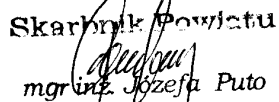 Skarbnik Powiatu
mgr inż. Józefa Puto